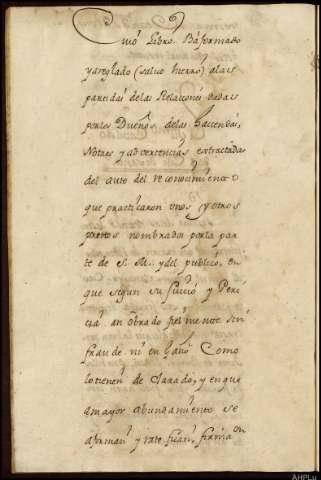 Cuió Libro. Bá formado
y areglado (salvo hierro) alas
partidas delas Relaciones dadas
por los Dueños delas haciendas,
Nottas y advertencias extractadas
del auto del reconocimiento
que practicaron unos, y otros
peritos nombrados por la par
te de S. M. y del publico, en
que segun su juicio y Peri
cia an obrado fielmente sin
fraude ni engaño Como
lo tienen declarado, y en que
a mayor abundamiento se
afirman y ratifican, firma on
AHPLu